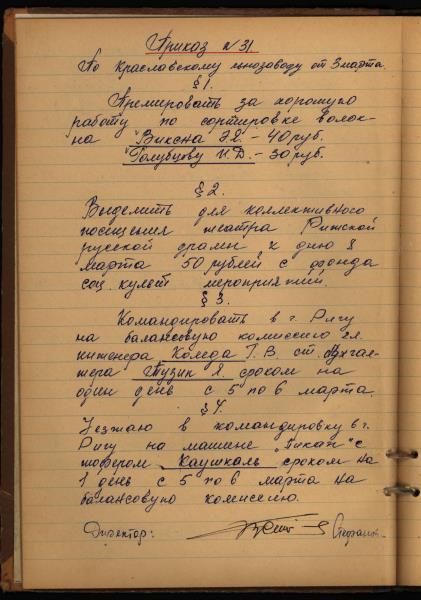 Приказ № 31
По Краславскому льнозаводу от 3 марта.
§ 1.
Премировать за хорошую
работу по сортировке волок-
на "Виксна Э.Я. - 40 руб.
"Голубцову И.Д. - 30 руб.
§ 2.
Выделить для коллективного
посещения театра Рижской
русской драмы к дню 8
марта 50 рублей с фонда
соц. культ мероприятий.
§ 3.
Командировать в г. Ригу
на балансовую комиссию гл.
инженера Коледа Г.В. ст. бухгал-
тера Тузик Я сроком на
один день с 5 по 6 марта.
§ 4.
Уезжаю в командировку в г.
Ригу на машине "Пикап" с
шофером Каушкаль сроком на
1 день с 5 по 6 марта на
балансовую комиссию.
Директор: